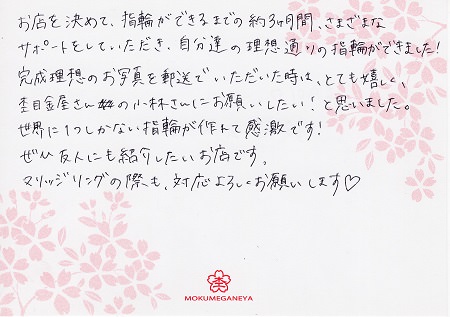 お店を決めて、指輪ができるまでの約3ヶ月間、さまざまな
サポートをしていただき、自分達の理想通りの指輪ができました!
完成理想のお写真を郵送でいただいた時は、とても嬉しく、
杢目金屋さんの小林さんにお願いしたい!と思いました。
世界に1つしかない指輪が作れて感激です!
ぜひ友人にも紹介したいお店です。
マリッジリングの際も、対応よろしくお願いします♡
杢
MOKUMEGANEYA